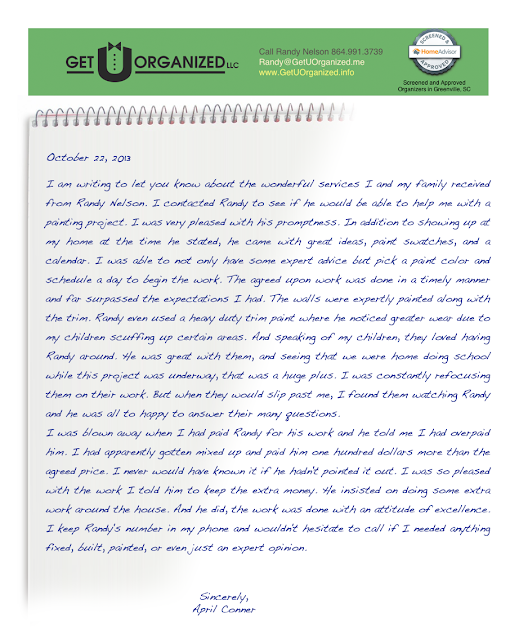 GET U ORGANIZED LLC
Call Randy Nelson 864.991.3739
Randy@GetUOrganized.me
www.GetUOrganized.info
SCREENED &
HomeAdvisor
APPROVED
Screened and Approved
Organizers in Greenville, SC
October 22, 2013
I am writing to let you know about the wonderful services I and my family received
from Randy Nelson. I contacted Randy to see if he would be able to help me with a
painting project. I was very pleased with his promptness. In addition to showing up at
my home at the time he stated, he came with great ideas, paint swatches, and a
calendar. I was able to not only have some expert advice but pick a paint color and
schedule a day to begin the work. The agreed upon work was done in a timely manner
and far surpassed the expectations I had. The walls were expertly painted along with
the trim. Randy even used a heavy duty trim paint where he noticed greater wear due to
my children scuffing up certain areas. And speaking of my children, they loved having
Randy around. He was great with them, and seeing that we were home doing school
while this project was underway, that was a huge plus. I was constantly refocusing
them on their work. But when they would slip past me, I found them watching Randy
and he was all to happy to answer their many questions.
I was blown away when I had paid Randy for his work and he told me I had overpaid
him. I had apparently gotten mixed up and paid him one hundred dollars more than the
agreed price. I never would have known it if he hadn't pointed it out. I was so pleased
with the work I told him to keep the extra money. He insisted on doing some extra
work around the house. And he did, the work was done with an attitude of excellence.
I keep Randy's number in my phone and wouldn't hesitate to call if I needed anything
fixed, built, painted, or even just an expert opinion.
Sincerely,
April Conner